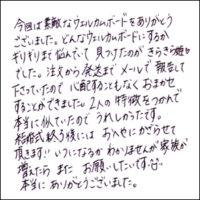 今回は素敵なウェルカムボードをありがとう
ございました。どんなウェルカムボードにするか
ギリギリまで悩んでいて 見つけたのが きらきら姫
でした。注文から発送まで メールで報告して
下さっていたので 心配することもなく おまかせ
することができました。2人の特徴をつかんで
本当に似ていたので うれしかったです。
結婚式終了後には おへやにかざらせて
頂きます!! いつになるかわかりませんが 家族が
増えたら また お願いしたいです。
本当に ありがとうございました。